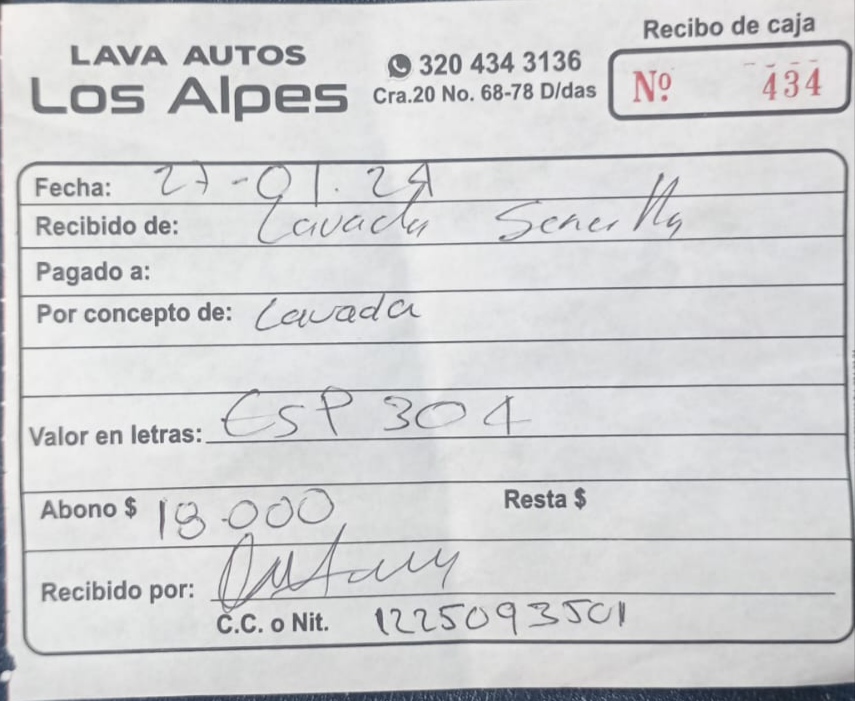 Recibo de caja
LAVA AUTOS
Los Alpes
320 434 3136
Cra.20 No. 68-78 D/das
Nº 434
Fecha: 27-01.24
Recibido de: Lavada Sencilla
Pagado a:
Por concepto de: Lavada
Valor en letras: ESP 304
Abono $ 18.000 Resta $
Recibido por:
C.C. o Nit. 1225093501